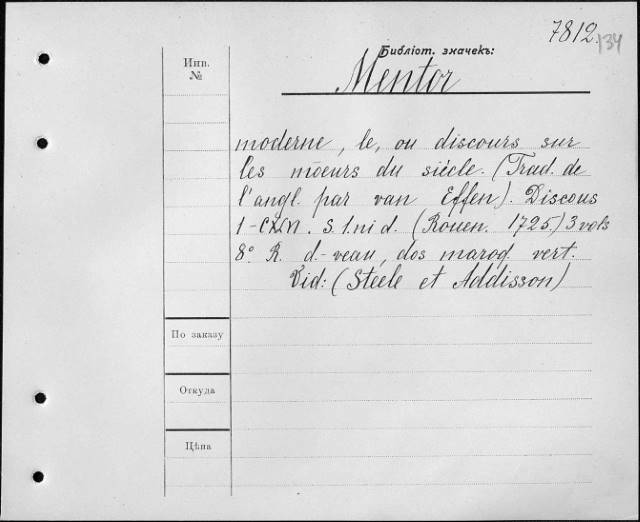 7812.
134
Библіот. значекъ:
Инв.
№
Mentor
moderne, le, ou discours sur
les mœurs du siècle. (Trad. de
l'angl. par van Effen). Discous
S. l. ni d. (Rouen. 1725.) 3 vols
8°. R. d-veau, dos maroq. vert.
Vid: (Steele et Addisson)
По заказу
Откуда
Цѣна